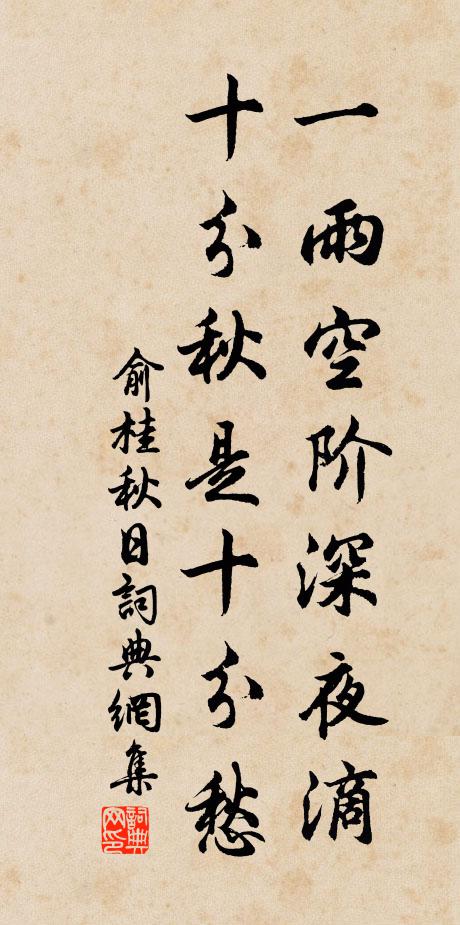 一雨空阶深夜滴
十分秋是十分愁
俞桂秋日詞典網集
詞典网印